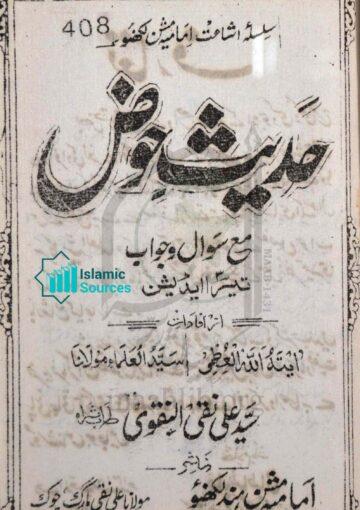 408
سلسلۂ اشاعت امامیہ مشن لکھنؤ
حدیث حوض
مع سوال و جواب
تیسرا ایڈیشن
Islamic
Sources
از افادات
آیتہ اللہ العظمیٰ سید العلماء مولانا
سید علی نقی النقوی طاب ثراہ
ناشر
امامیہ مشن ہند لکھنؤ
مولانا علی نقی پارک چوک